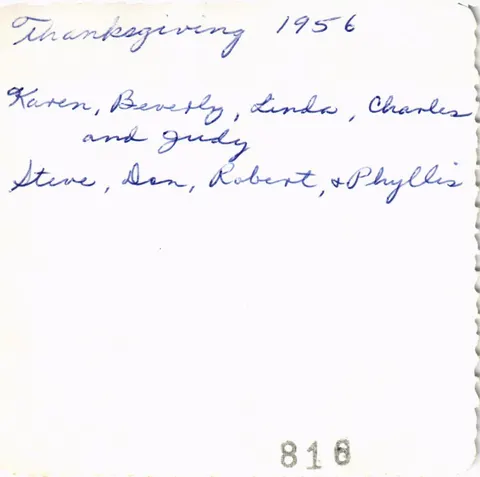 Thanksgiving 1956
Karen, Beverly, Linda, Charles
and Judy
Steve, Don, Robert, & Phyllis
818